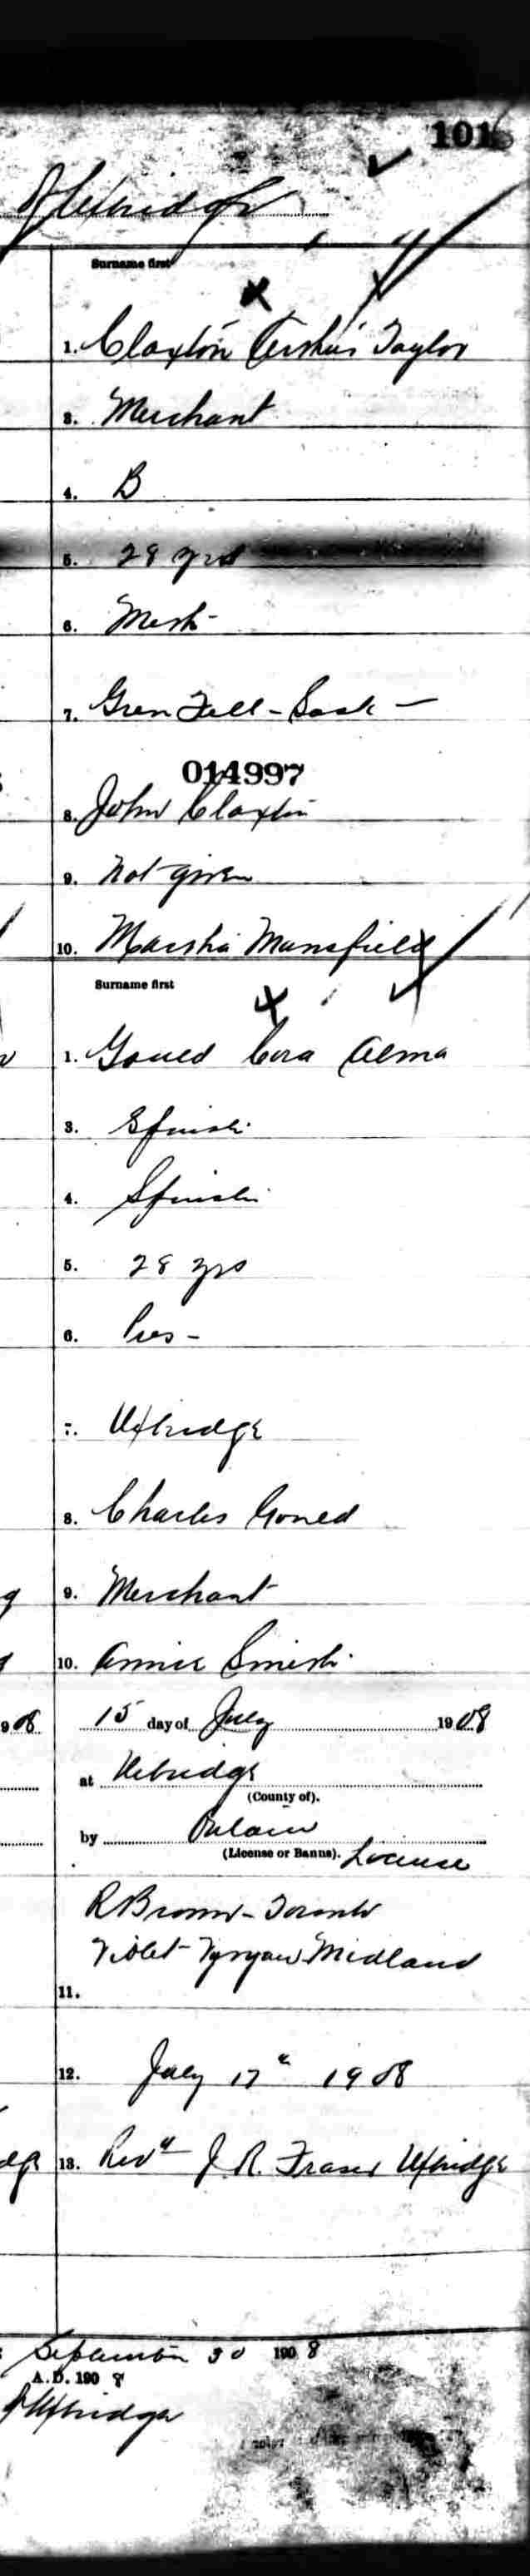 101
Uxbridge
Surname first
1. Claxton Arthur Taylor
3. Merchant
4. B
5. 28 yrs
6. Meth-
7. Grenfell - Sask -
014997
8. John Claxton
9. Not given
10. Marsha Mansfield
Surname first
1. Gould Cora Alma
3. Spinster
4. Spinster
5. 28 yrs
6. Pres -
7. Uxbridge
8. Charles Gould
9. Merchant
10. Annie Smith
15 day of July 1908
at Uxbridge
(County of).
by Ontario
(License or Banns). License
R Brown - Toronto
Violet Midland
11.
12. July 17th 1908
13. Revd J. R. Fraser Uxbridge
September 30 1908
A.D. 1908
Uxbridge